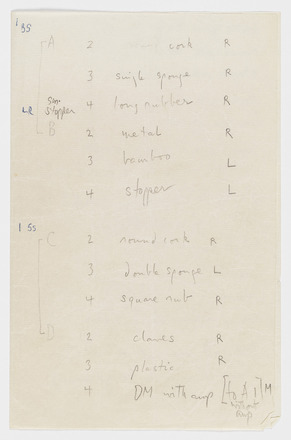 A 2 cork R
3 single sponge R
LR Sm. stopper 4 long rubber R
B 2 metal R
3 bamboo L
4 stopper L
1 55
C 2 round cork R
3 double sponge L
4 square nut R
D 2 claves R
3 plastic R
4 DM with amp [to A 1] M
without amp